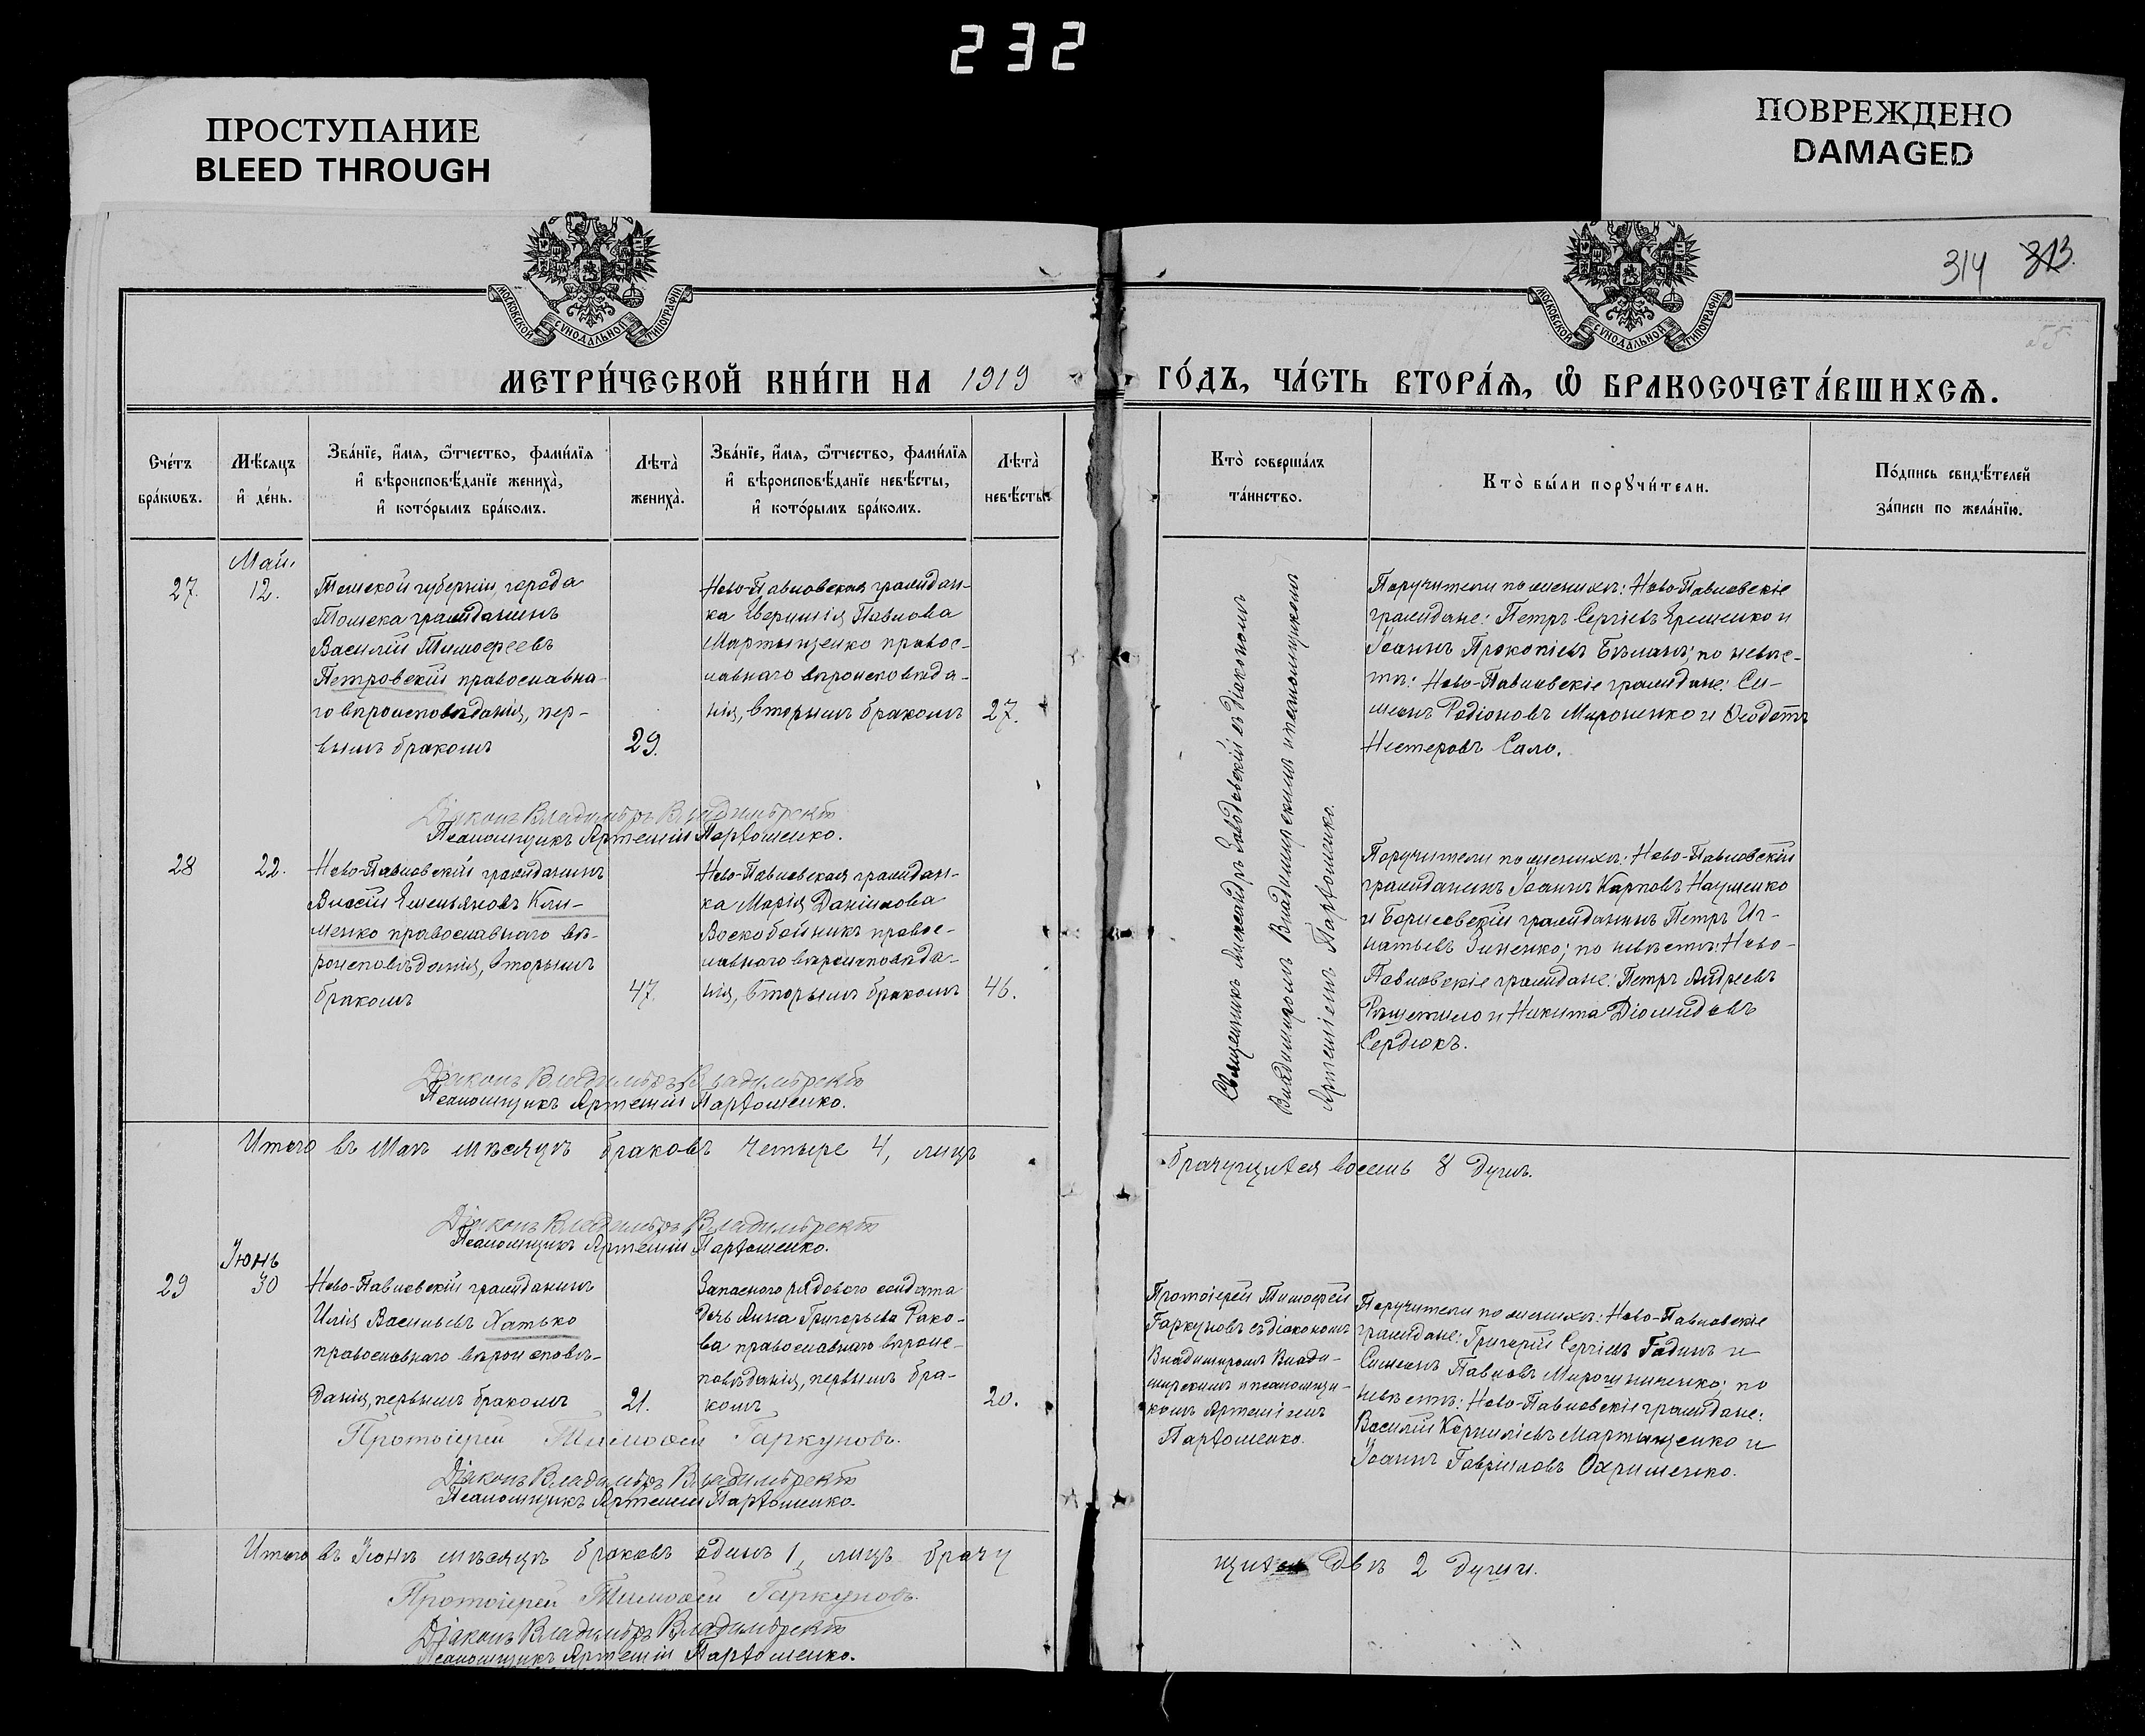 232
ПРОСТУПАНИЕ
BLEED THROUGH
ПОВРЕЖДЕНО
DAMAGED
314 313.
55
МОСКОВСКОЙ СѴНОДАЛЬНОЙ ТИПОГРАФІИ
МОСКОВСКОЙ СѴНОДАЛЬНОЙ ТИПОГРАФІИ
МЕТРИ́ЧЕСКОЙ КНИ́ГИ НА 1919 ГО́ДЪ, ЧА́СТЬ ВТОРА́Ѧ, Ѽ БРАКОСОЧЕТА́ВШИХСѦ.
Сче́тъ
бра́кѡвъ.
Мѣ́сѧцъ
и҆ де́нь.
Зва́нїе, и҆́мѧ, ѻ҆́тчество, фами́лїѧ
и҆ вѣроисповѣ́данїе жениха̀,
и҆ кото́рымъ бра́комъ.
Лѣта̀
жениха̀.
Зва́нїе, и҆́мѧ, ѻ҆́тчество, фами́лїѧ
и҆ вѣроисповѣ́данїе невѣ́сты,
и҆ кото́рымъ бра́комъ.
Лѣта̀
невѣ́сты.
Кто̀ соверша́лъ
та́инство.
Кто̀ бы́ли порꙋчи́тели.
По́дпись свидѣ́телей
за́писи по жела́нїю.
Май.
27.
12.
Томской губерніи, города
Томска гражданинъ
Василій Тимофеевъ
Петровскій православна-
го вѣроисповѣданія, пер-
вымъ бракомъ
29.
Ново-Павловская граждан-
ка Павлова
Мартыщенко правос-
лавнаго вѣроисповѣда-
нія, вторымъ бракомъ
27.
Священникъ Александръ съ діакономъ
Владимиромъ Владимирскимъ и псаломщикомъ
Артеміемъ Парѳоменко.
Поручители по женихѣ: Ново-Павловскіе
граждане: Петръ Сергіевъ Еременко и
Іоаннъ Прокопіевъ Бѣланъ; по невѣс-
тѣ: Ново-Павловскіе граждане: Си-
меонъ Родіоновъ Мироненко и Ѳеодотъ
Нестеровъ Сало.
Діаконъ Владиміръ Владимірскій
Псаломщикъ Артемій Парѳоменко.
28
22.
Ново-Павловскій гражданинъ
Власій Емельяновъ Кли-
менко православнаго вѣ-
роисповѣданія, вторымъ
бракомъ
47.
Ново-Павловская граждан-
ка Марія Даніилова
Воскобойникъ правос-
лавнаго вѣроисповѣда-
нія, вторымъ бракомъ
46.
Поручители по женихѣ: Ново-Павловскій
гражданинъ Іоаннъ Карповъ Науменко
и Борисовскій гражданинъ Петръ Иг-
натьевъ Зиненко; по невѣстѣ: Ново-
Павловскіе граждане: Петръ Андреевъ
Рѣшетило и Никита Діомидовъ
Сердюкъ.
Діаконъ Владиміръ Владимірскій
Псаломщикъ Артемій Парѳоменко.
Итого въ Маѣ мѣсяцѣ браковъ четыре 4, лицъ брачущихся восемь 8 душъ.
Діаконъ Владиміръ Владимірскій
Псаломщикъ Артемій Парѳоменко.
Іюнь
29
30
Ново-Павловскій гражданинъ
Илія Васильевъ Хатько
православнаго вѣроисповѣ-
данія, первымъ бракомъ
21.
Запаснаго рядового солдата
дочь Анна Григорьева Рако-
ва православнаго вѣроис-
повѣданія, первымъ бра-
комъ
20.
Протоіерей Тимофей
Гаркуновъ съ діакономъ
Владимиромъ Влади-
мирскимъ и псаломщи-
комъ Артеміемъ
Парѳоменко.
Поручители по женихѣ: Ново-Павловскіе
граждане: Григорій Сергіевъ Гадинъ и
Симеонъ Павловъ Мирошниченко; по
невѣстѣ: Ново-Павловскіе граждане:
Василій Корниліевъ Мартыщенко и
Іоаннъ Гавриловъ Охрименко.
Протоіерей Тимоѳей Гаркуновъ.
Діаконъ Владиміръ Владимірскій
Псаломщикъ Артемій Парѳоменко.
Итого въ Іюнѣ мѣсяцѣ браковъ одинъ 1, лицъ брачу щихся двѣ 2 души.
Протоіерей Тимоѳей Гаркуновъ.
Діаконъ Владиміръ Владимірскій
Псаломщикъ Артемій Парѳоменко.